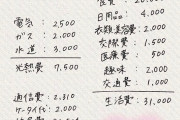 電気: 2,500
ガス: 2,000
水道: 3,000
光熱費: 7,500
通信費: 2,310
ケータイ代: 2,000
日用品: 4,000
衣類美容費: 2,000
交際費: 1,500
医療費: 500
趣味: 2,000
交通費: 1,000
生活費: 31,000